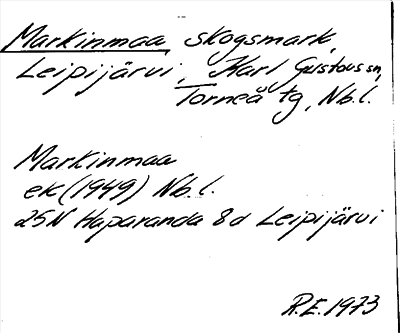 Markinmaa, skogsmark,
Leipijärvi, Karl Gustovs sn,
Torneå tg, Nb.l.
Markinmaa
ek (1949) Nb.l.
25N Haparanda 8d Leipijärvi
R.E. 1973